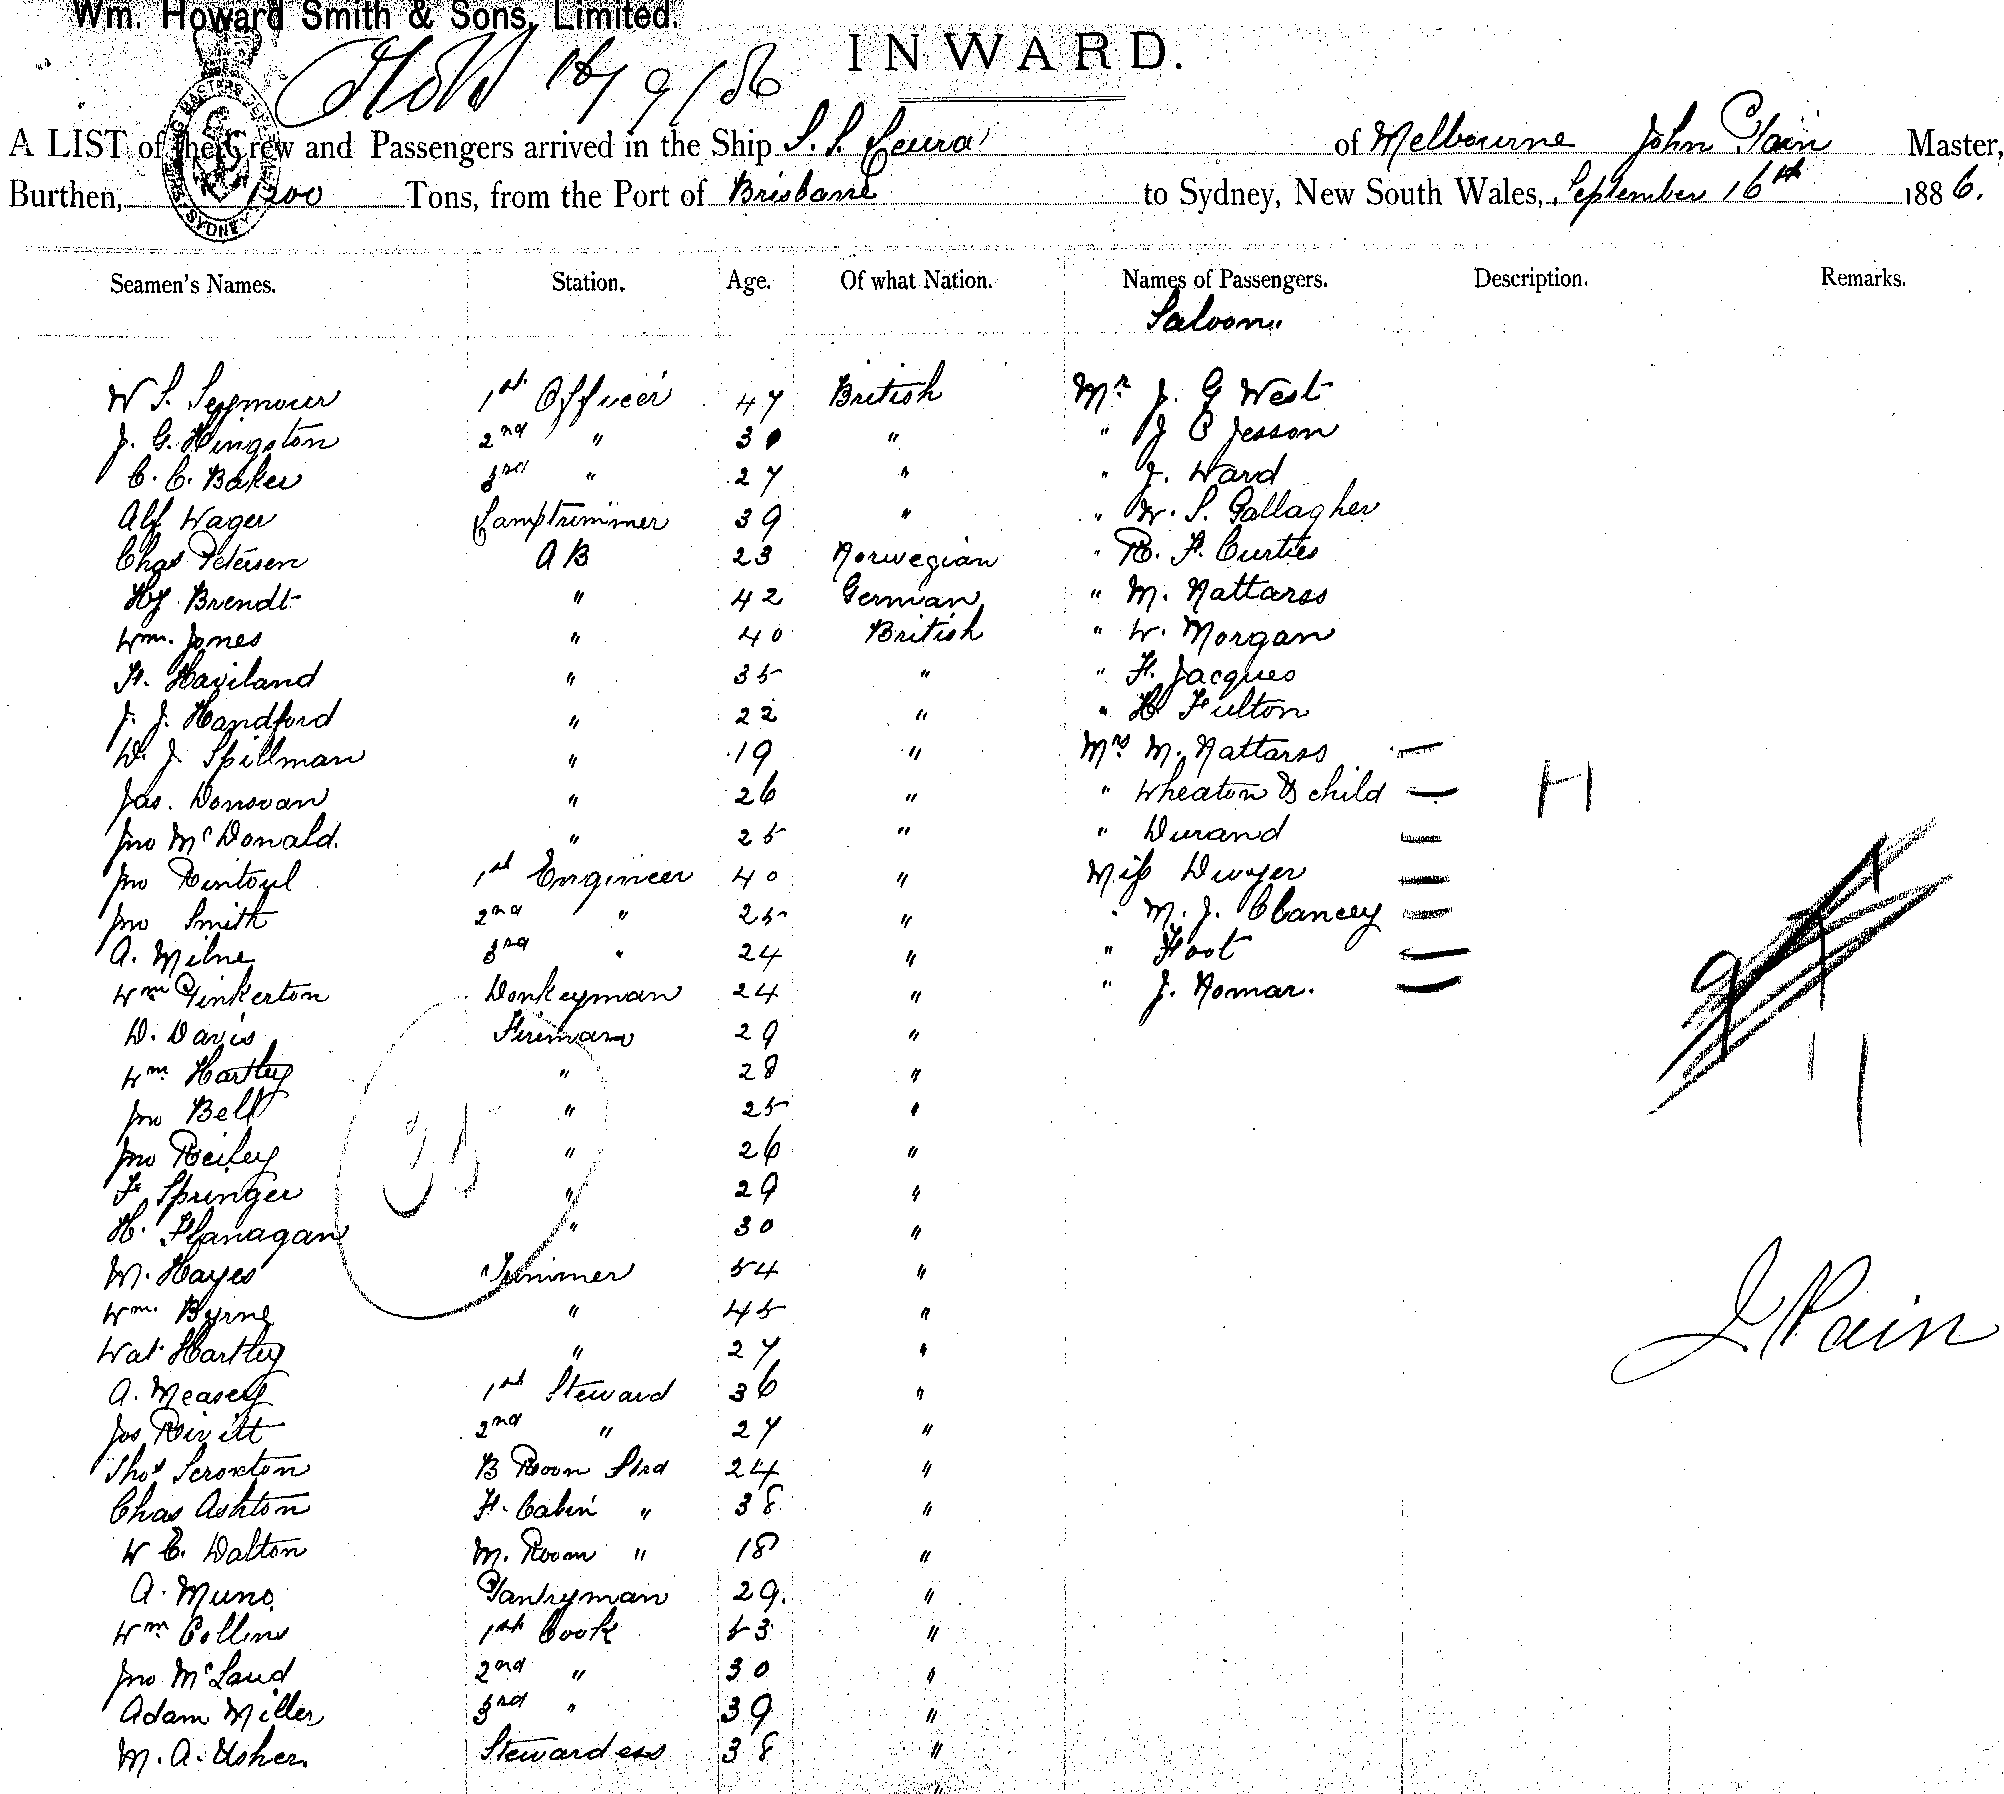 Wm. Howard Smith & Sons, Limited.
INWARD.
16/9/86
A LIST of the Crew and Passengers arrived in the Ship S.S. Leura of Melbourne John Pain Master,
Burthen, 1200 Tons, from the Port of Brisbane to Sydney, New South Wales, September 16th 1886.
Seamen's Names. Station. Age. Of what Nation. Names of Passengers. Description. Remarks.
Saloon
W S. Seymour 1st Officer 47 British Mr J. G West
J. G. Kingston 2nd " 30 " " J C Jesson
C. C. Baker 3rd " 27 " " J. Ward
Alf Wager Lamptrimmer 39 " " W. S. Gallagher
Chas Petersen AB 23 Norwegian " R. F. Curties
Hy Brendt " 42 German " M. Nattarss
Wm. Jones " 40 British " W. Morgan
F. Haviland " 35 " " F. Jacques
J. J. Handford " 22 " " H Fulton
W. J. Spillman " 19 " Mrs M. Nattarss
Jas. Donovan " 26 " " Wheaton & child H
Jno McDonald. " 25 " " Durand
Jno Rintoul 1st Engineer 40 " Miss Dwyer
Jno Smith 2nd " 25 " " M. J. Clancey
A. Milne 3rd " 24 " " Foot
Wm Pinkerton Donkeyman 24 " " J. Nomar.
D. Davis Fireman 29 "
Wm Hartley " 28 "
Jno Bell " 25 "
Jno Reiley " 26 "
35
F Springer " 29 "
H. Flanagan " 30 "
M. Hayes Trimmer 54 "
Wm. Byrne " 45 "
J Pain
Wat Hartley " 27 "
A. Measey 1st Steward 36 "
Jos Rivitt 2nd " 27 "
Thos Scroxton B Room Strd 24 "
Chas Ashton F. Cabin " 38 "
W C. Dalton M. Room " 18 "
A. Muno. Pantryman 29. "
Wm Collins 1st Cook 53 "
Jno McLaud 2nd " 30 "
Adam Miller 3rd " 39 "
M. A. Usher. Stewardess 38 "
"